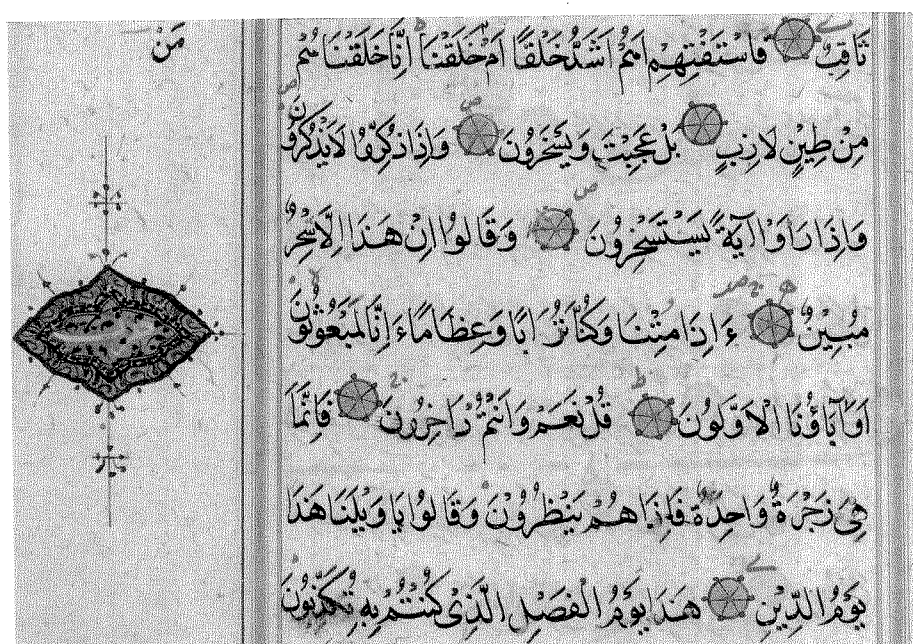 ثَاقِبٌ فَاسْتَفْتِهِمْ اَهُمْ اَشَدُّ خَلْقًا اَمْ مَنْ خَلَقْنَا اِنَّا خَلَقْنَاهُمْ
مِنْ طِينٍ لَازِبٍ بَلْ عَجِبْتَ وَيَسْخَرُونَ وَاِذَا ذُكِّرُوا لَايَذْكُرُونَ
وَاِذَا رَاَوْا آيَةً يَسْتَسْخِرُونَ وَقَالُوا اِنْ هَذَا اِلَّا سِحْرٌ
مُبِينٌ ءَاِذَا مِتْنَا وَكُنَّا تُرَابًا وَعِظَامًا ءَاِنَّا لَمَبْعُوثُونَ
اَوَآبَاؤُنَا الْاَوَّلُونَ قُلْ نَعَمْ وَاَنْتُمْ دَاخِرُونَ فَاِنَّمَا
هِيَ زَجْرَةٌ وَاحِدَةٌ فَاِذَا هُمْ يَنْظُرُونَ وَقَالُوا يَا وَيْلَنَا هَذَا
يَوْمُ الدِّينِ هَذَا يَوْمُ الْفَصْلِ الَّذِي كُنْتُمْ بِهِ تُكَذِّبُونَ